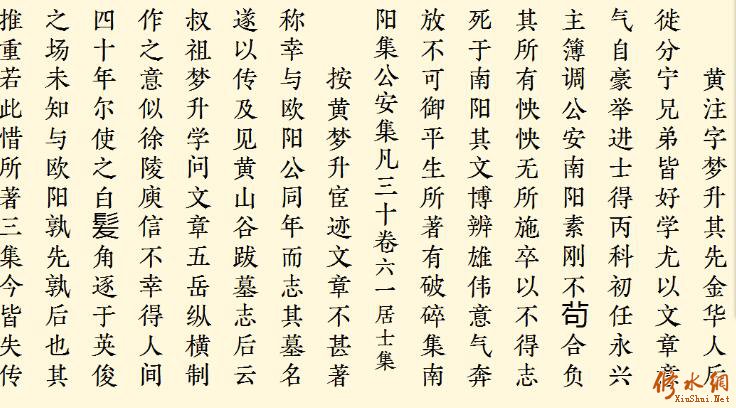 黄注字梦升其先金华人后
徙分宁兄弟皆好学尤以文章意
气自豪举进士得丙科初任永兴
主簿调公安南阳素刚不苟合负
其所有怏怏无所施卒以不得志
死于南阳其文博辨雄伟意气奔
放不可御平生所著有破碎集南
阳集公安集凡三十卷六一居士集
按黄梦升宦迹文章不甚著
称幸与欧阳公同年而志其墓名
遂以传及见黄山谷跋墓志后云
叔祖梦升学问文章五岳纵横制
作之意似徐陵庾信不幸得人间
四十年尔使之白髪角逐于英俊
之场未知与欧阳孰先孰后也其
推重若此惜所著三集今皆失传
修水網
XiuShui.Net